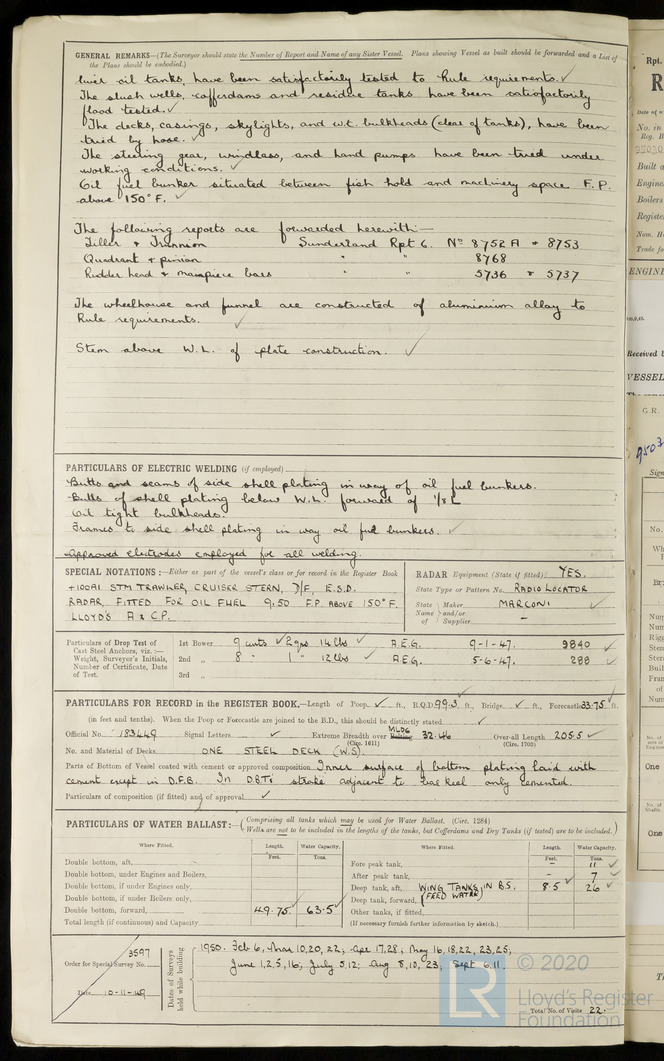 GENERAL REMARKS—(The Surveyor should state the Number of Report and Name of any Sister Vessel. Plans showing Vessel as built should be forwarded and a List of
the Plans should be embodied.)
liver oil tanks, have been satisfactorily tested to Rule requirements. ✓
The slush wells, cofferdams and residue tanks have been satisfactorily
flood tested. ✓
The decks, casings, skylights, and w.t. bulkheads (clear of tanks), have been
tried by hose. ✓
The steering gear, windlass, and hand pumps have been tried under
working conditions. ✓
Oil fuel bunker situated between fish hold and machinery space F.P.
above 150°F. ✓
The following reports are forwarded herewith:—
Tiller & Trunnion Sunderland Rpt 6. Nº 8752A & 8753
Quadrant & pinion " " 8768
Rudder head & mainpiece bars " " 5736 & 5737
The wheelhouse and funnel are constructed of aluminium alloy to
Rule requirements. ✓
Stem above W.L. of plate construction. ✓
PARTICULARS OF ELECTRIC WELDING (if employed)
Butts and seams of side shell plating in way of oil fuel bunkers.
Butts of shell plating below W.L. forward of 1/8 L
Oil tight bulkheads.
Frames to side shell plating in way oil fuel bunkers. ✓
Approved electrodes employed for all welding.
SPECIAL NOTATIONS:—Either as part of the vessel's class or for record in the Register Book
+100A1 STM TRAWLER, CRUISER STERN, D/F, E.S.D.
RADAR, FITTED FOR OIL FUEL 9.50 F.P. ABOVE 150°F.
LLOYD'S A & CP.
RADAR Equipment (State if fitted) YES.
State Type or Pattern No. RADIO LOCATOR
State Name of Maker and/or Supplier MARCONI ✓
–
Particulars of Drop Test of Cast Steel Anchors, viz.:— Weight, Surveyor's Initials, Number of Certificate, Date of Test.
1st Bower 9 cwts ✓ 2 qrs 14 lbs ✓ A.E.G. 9-1-47. 9840 ✓
2nd „ 8 " 1 " 12 lbs ✓ A.E.G. 5-6-47. 288 ✓
3rd „
PARTICULARS FOR RECORD in the REGISTER BOOK.—Length of Poop ✓ ft., R.Q.D. 99.3 ft., Bridge ✓ ft., Forecastle 33.75 ft.
(in feet and tenths). When the Poop or Forecastle are joined to the B.D., this should be distinctly stated ✓
Official No. 183449 Signal Letters ✓ Extreme Breadth over MLDG 32.46 Over-all Length 205.5 ✓
(Circ. 1611) (Circ. 1703)
No. and Material of Decks ONE STEEL DECK (W.S).
Parts of Bottom of Vessel coated with cement or approved composition Inner surface of bottom plating laid with
cement except in O.F.B. In D.B.Ts strake adjacent to bar keel only cemented.
Particulars of composition (if fitted) and of approval ✓
PARTICULARS OF WATER BALLAST:—(Comprising all tanks which may be used for Water Ballast. (Circ. 1284)
Wells are not to be included in the lengths of the tanks, but Cofferdams and Dry Tanks (if tested) are to be included.)
Where Fitted. Length. Feet. Water Capacity. Tons.
Double bottom, aft,
Double bottom, under Engines and Boilers,
Double bottom, if under Engines only,
Double bottom, if under Boilers only,
Double bottom, forward, 49.75 63.5 ✓
Total length (if continuous) and Capacity
Where Fitted. Length. Feet. Water Capacity. Tons.
Fore peak tank, – 11 ✓
After peak tank, – 7 ✓
Deep tank, aft, WING TANKS IN B.S. 8.5 ✓ 26 ✓
Deep tank, forward, (FEED WATER)
Other tanks, if fitted,
(If necessary furnish further information by sketch.)
Order for Special Survey No. 3597
Date 10-11-49
Dates of Surveys held while building
1950. Feb 6, Mar 10, 20, 22; Apr 17, 28; May 16, 18, 22, 23, 25;
June 1, 2, 5, 16; July 5, 12; Aug 8, 10, 23, Sept 6. 11.
Total No. of Visits 22.
© 2020
LR
Lloyd's Register
Foundation
Rpt.
R
No. in
Reg. B
Built a
Engine
Boilers
Registe
Trade fo
ENGINE
Received b
VESSEL
G.R.
9503
Sign
No.
One
One